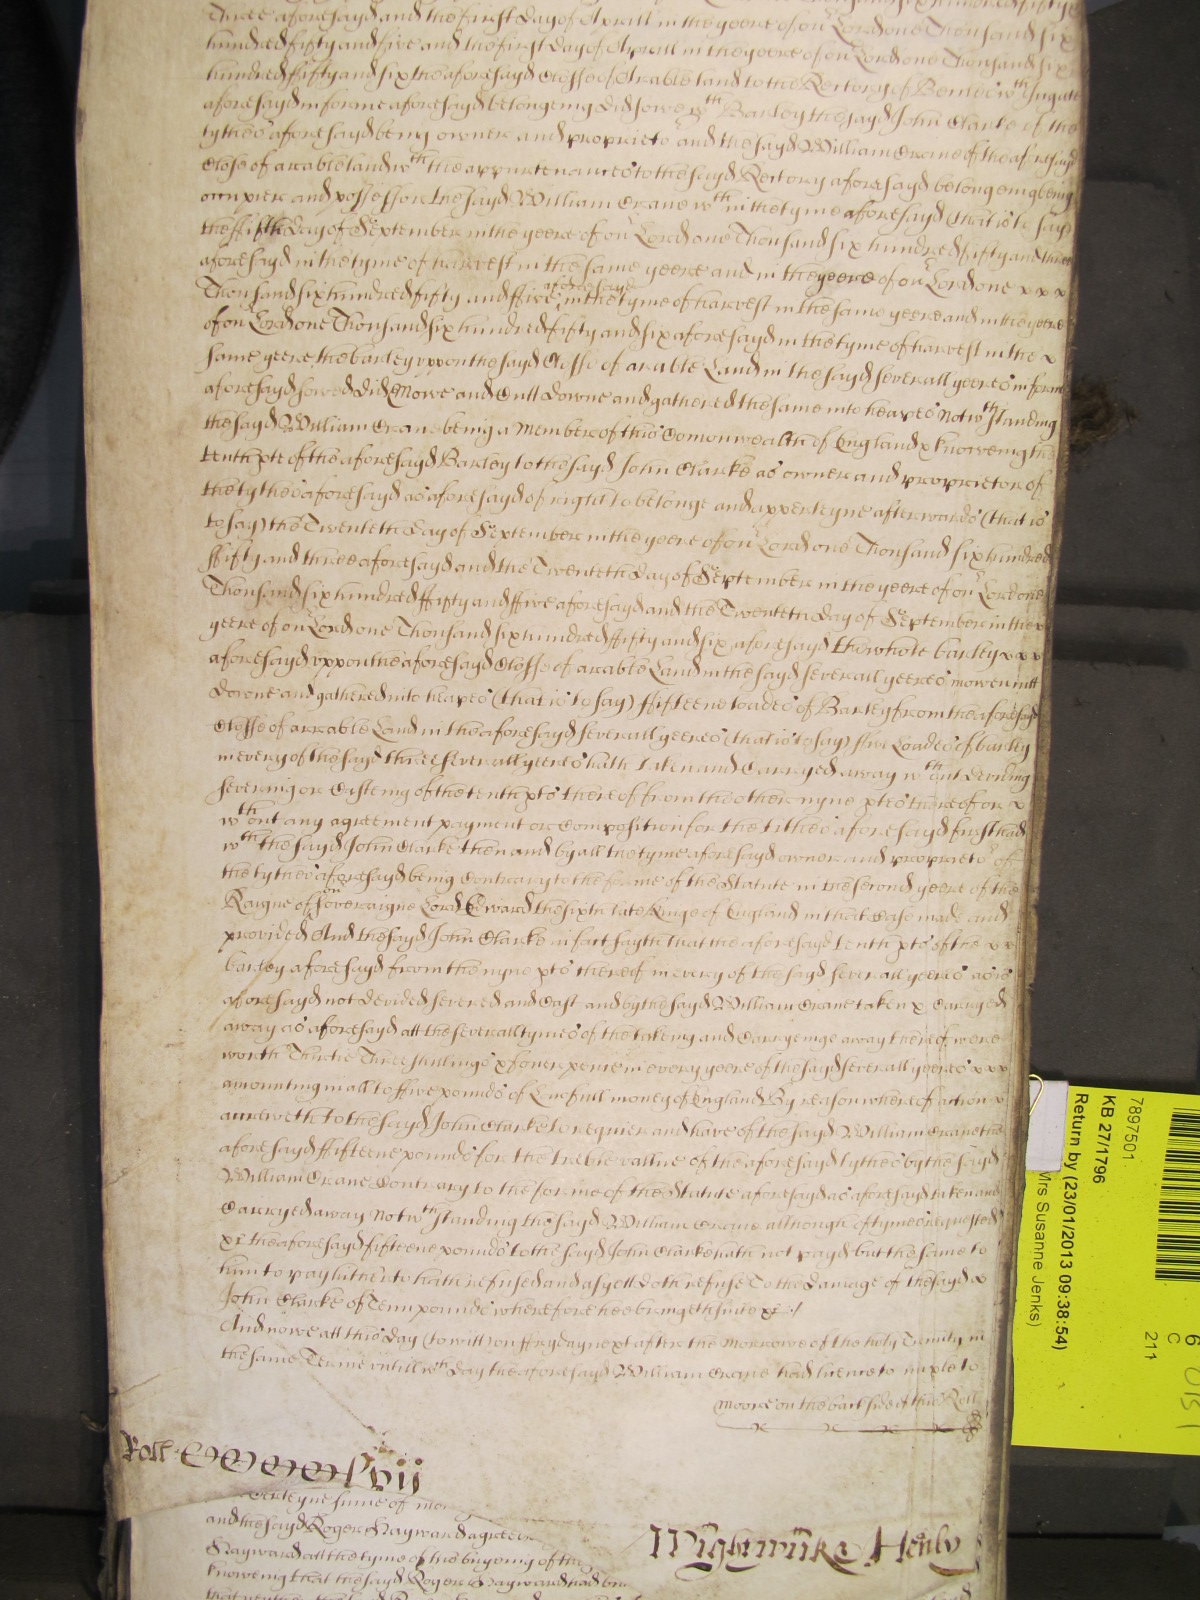 Three aforesayd and the first day of Aprill in the yeere of our Lord one Thousand six
hundred fifty and five and the first day of Aprill in the yeere of our Lord one Thousand six
hundred ffifty and six the aforesayd Closse of Arable land to the Rectory of
aforesayd in forme aforesayd belongeing did sowe wth Barley the sayd John Clarke of the
tythes aforesayd being owner and proprietor and the sayd William Crane of the aforesayd
Close of arrable land wth the appurtenances to the sayd Rectory aforesayd belongeing being
occupier and possessor the sayd William Crane wthin the tyme aforesayd (that is to say)
the fifth day of September in the yeere of our Lord one Thousand six hundred fifty and three
aforesayd in the tyme of harvest in the same yeere and in the yeere of our Lord one x x x
Thousand six hundred fifty and ffive aforesayd in the tyme of harvest in the same yeere and in the yeere
of our Lord one Thousand six hundred fifty and six aforesayd in the tyme of harvest in the x
same yeere the barley uppon the sayd Closse of arable Land in the sayd severall yeeres in forme
aforesayd sowed did Mowe and Cutt downe and gathered the same into heapes Notwthstanding
the sayd William Crane being a Member of this Comonwealth of England x knoweing the
tenth pte of the aforesayd Barley to the sayd John Clarke as owner and proprietor of
the tythes aforesayd as aforesayd of right to belonge and apperteyne afterwards (that is
to say) the Twenteth day of September in the yeere of our Lord one Thousand six hundred
ffifty and three aforesayd and the Twenteth day of September in the yeere of our Lord one
Thousand six hundred ffifty and ffive aforesayd and the Twenteth day of September in the x
yeere of our Lord one Thousand six hundred ffifty and six aforesayd the whole barley x x x
aforesayd uppon the aforesayd Closse of arrable Land in the sayd severall yeeres mowen cutt
downe and gathered into heapes (that is to say) ffifteene loades of Barley from the aforesayd
Closse of arrable Land in the aforesayd severall yeeres (that is to say) ffive Loades of barley
in every of the sayd three severall yeeres hath taken and Carryed away wthout deviding
severing or Casteing of the tenth pts thereof from the other nyne ptes thereof or x
wthout any agreement payment or Composition for the tithes aforesayd first had
wth the sayd John Clarke then and by all the tyme aforesayd owner and proprietor of
the tythes aforesayd being Contrary to the forme of the Statute in the second yeere of the
Raigne of our Soveraigne Lord Edward the sixth late Kinge of England in that Case made and
provided And the sayd John Clarke in fact sayth that the aforesayd tenth pts of the x x
barley aforesayd from the nyne pts thereof in every of the sayd severall yeeres as is
aforesayd not devided severed and Cast and by the sayd William Crane taken x Carryed
away as aforesayd att the severall tymes of the takeing and Carryeinge away thereof were
worth Thirtie Three shillings x fower pence in every yeere of the sayd severall yeeres x x x
amounting in all to ffive pounds of Lawfull money of England By reason whereof action x
accreweth to the sayd John Clarke to requier and have of the sayd William Crane the
aforesayd ffifteene pounds for the treble vallue of the aforesayd tythes by the sayd
William Crane Contrary to the forme of the Statute aforesayd as aforesayd taken and
Carryed away Notwthstanding the sayd William Crane although oftymes requested
xc the aforesayd fifteene pounds to the sayd John Clarke hath not payd but the same to
him to pay hitherto hath refused and as yett doth refuse To the damage of the sayd x
John Clarke of Tenn pounds wherefore hee bringeth suite xc ./
And nowe att this day (to witt) on ffryday next after the Morrowe of the holy Trinity in
the same Terme untill wch day the aforesayd William Crane had licence to imple to
Moore on the backside of this Roll
Roll CCCCCLvij
Wightwicke Henly
perteyne sume of mo
and the sayd Roger Hayward agree
Hayward att the tyme of his buyoing of the
knoweing that the sayd Roger Hayward had
7897501
KB 27/1796
Return by (23/01/2013 09:38:54)
Mrs Susanne Jenks)
6
C
211